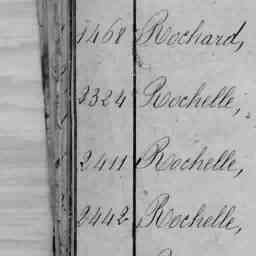 1468 Rochard,
2324 Rochelle,
2411 Rochelle,
2442 Rochelle,